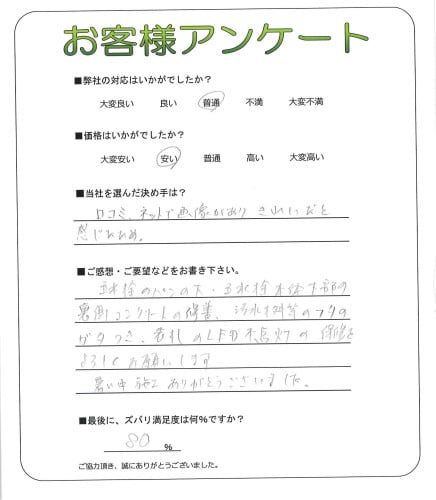 お客様アンケート
■弊社の対応はいかがでしたか?
大変良い 良い 普通 不満 大変不満
■価格はいかがでしたか?
大変安い 安い 普通 高い 大変高い
■当社を選んだ決め手は?
口コミ、ネットで画像があり きれいだと
感じたため。
■ご感想・ご要望などをお書き下さい。
立水栓の 立水栓本体下部の
裏側コンクリートの補善、汚水桝のフタの
ガタつき、表札のLED不点灯の保障を
よろしくお願いします
暑い中施工ありがとうございました。
■最後に、ズバリ満足度は何%ですか?
80 %
ご協力頂き、誠にありがとうございました。